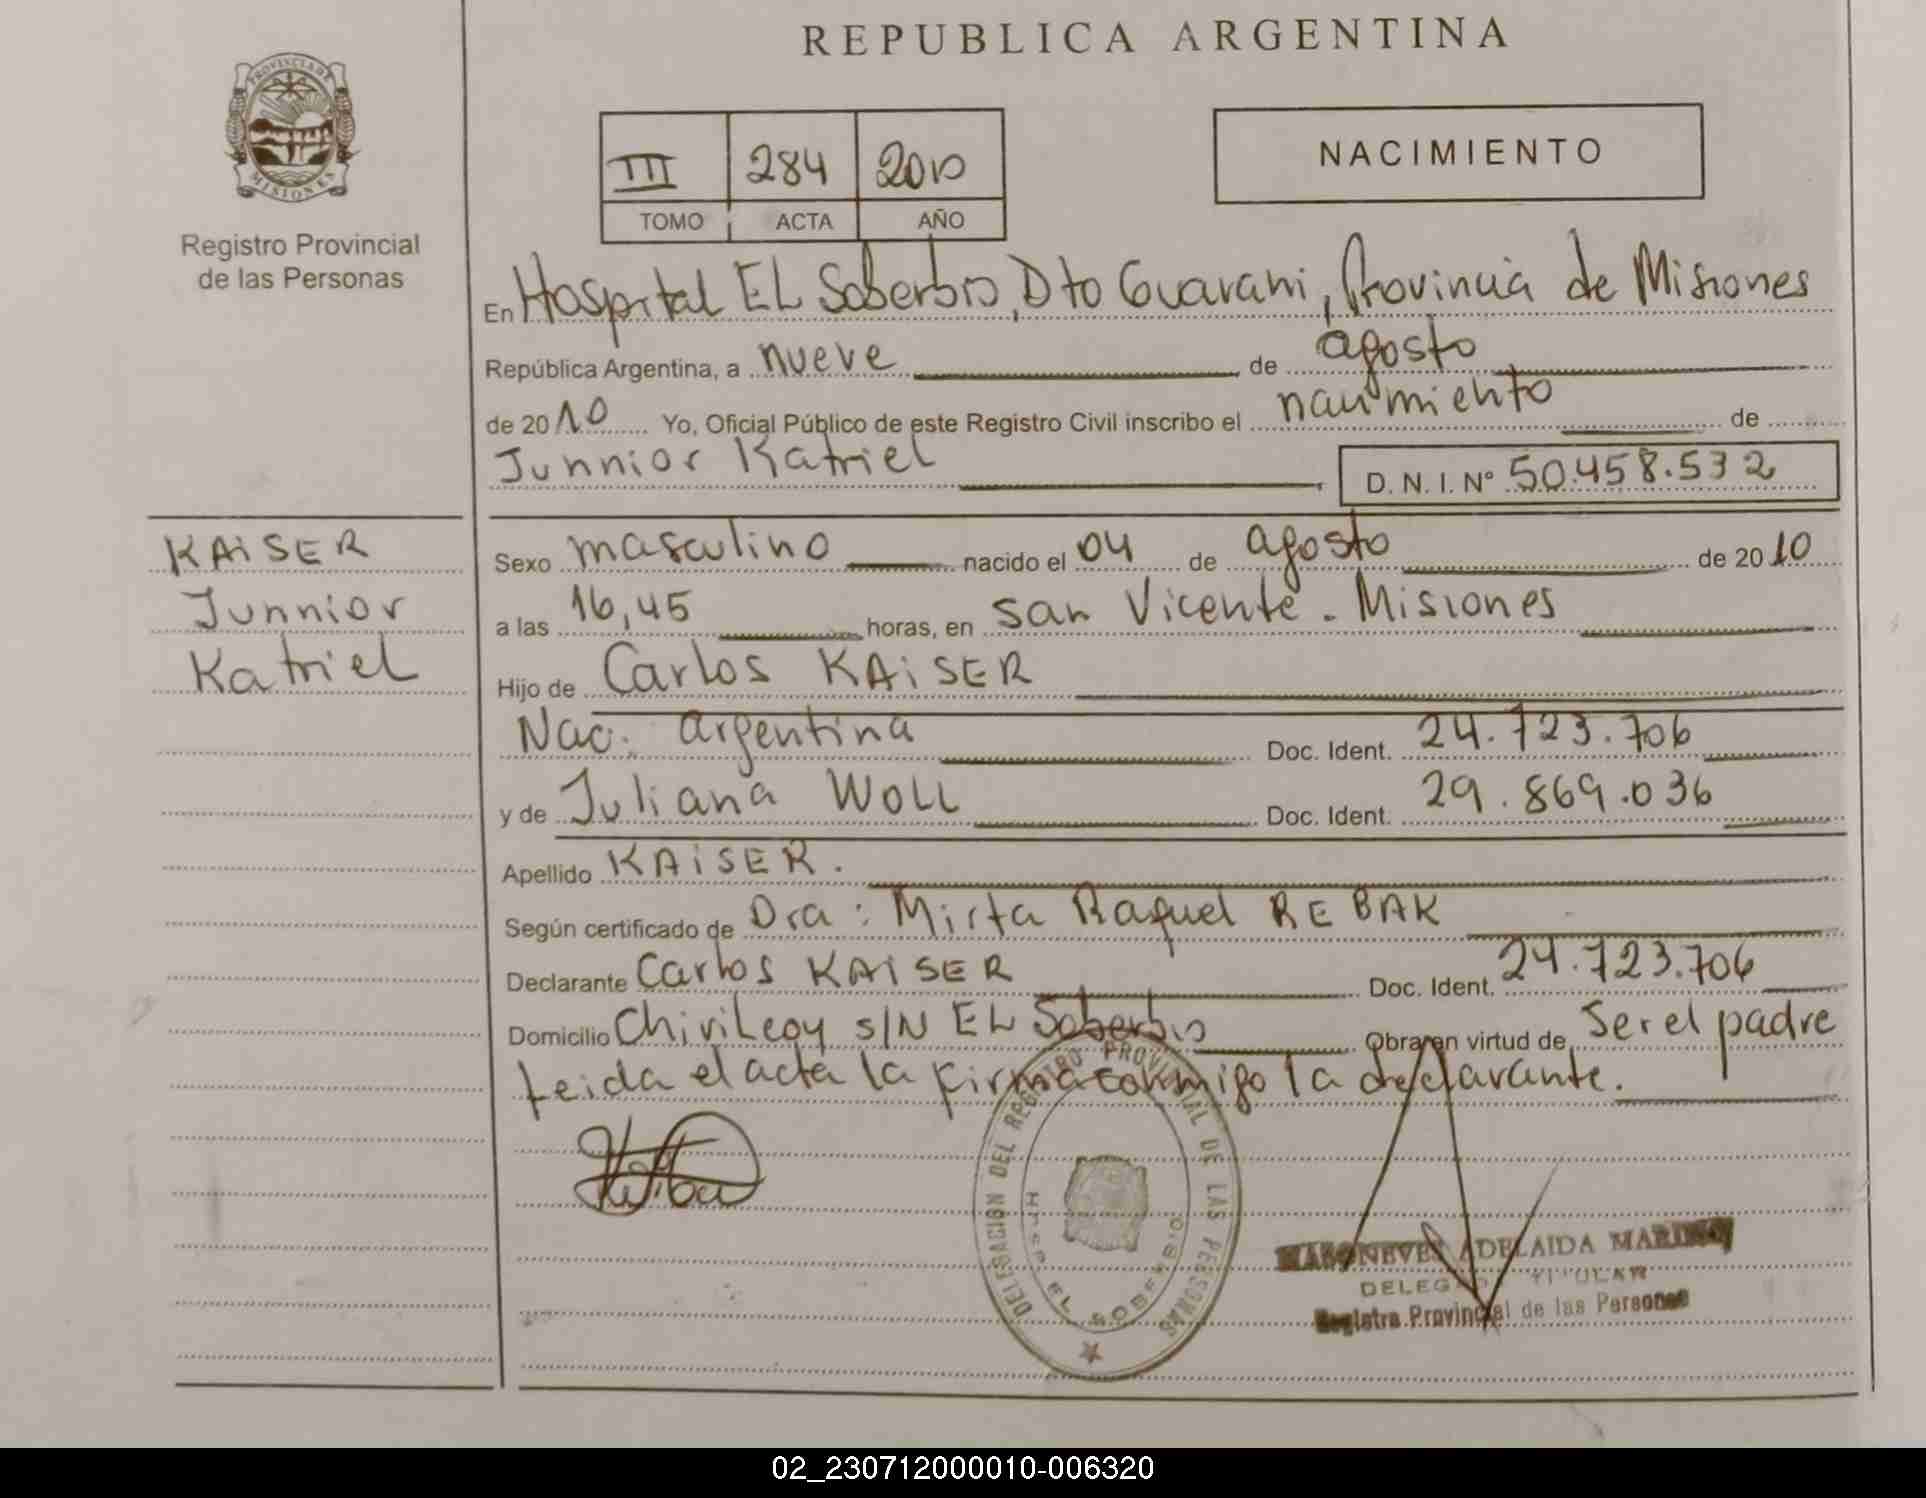 REPUBLICA ARGENTINA
PROVINCIA DE MISIONES
Registro Provincial
de las Personas
III 284 2010
TOMO ACTA AÑO
NACIMIENTO
En Hospital EL Soberbio, Dto Guarani, Provincia de Misiones
República Argentina, a nueve de agosto
de 2010 Yo, Oficial Público de este Registro Civil inscribo el nacimiento de
Junnior Katriel D.N.I. Nº 50.458.532
KAiSER
Junnior
Katriel
Sexo masculino nacido el 04 de agosto de 2010
a las 16,45 horas, en San Vicente - Misiones
Hijo de Carlos KAiSER
Nac. argentina Doc. Ident. 24.723.706
y de Juliana WOLL Doc. Ident. 29.869.036
Apellido KAiSER.
Según certificado de Dra: Mirta Raquel REBAK
Declarante Carlos KAISER Doc. Ident. 24.723.706
Domicilio Chivilcoy S/N EL Soberbio Obra en virtud de Ser el padre
Leida el acta la firma conmigo la declarante.
DELEGACION DEL REGISTRO PROVINCIAL DE LAS PERSONAS
HOSP. EL SOBERBIO
ADELAIDA
TITULAR
Registro Provincial de las Personas
02_230712000010-006320